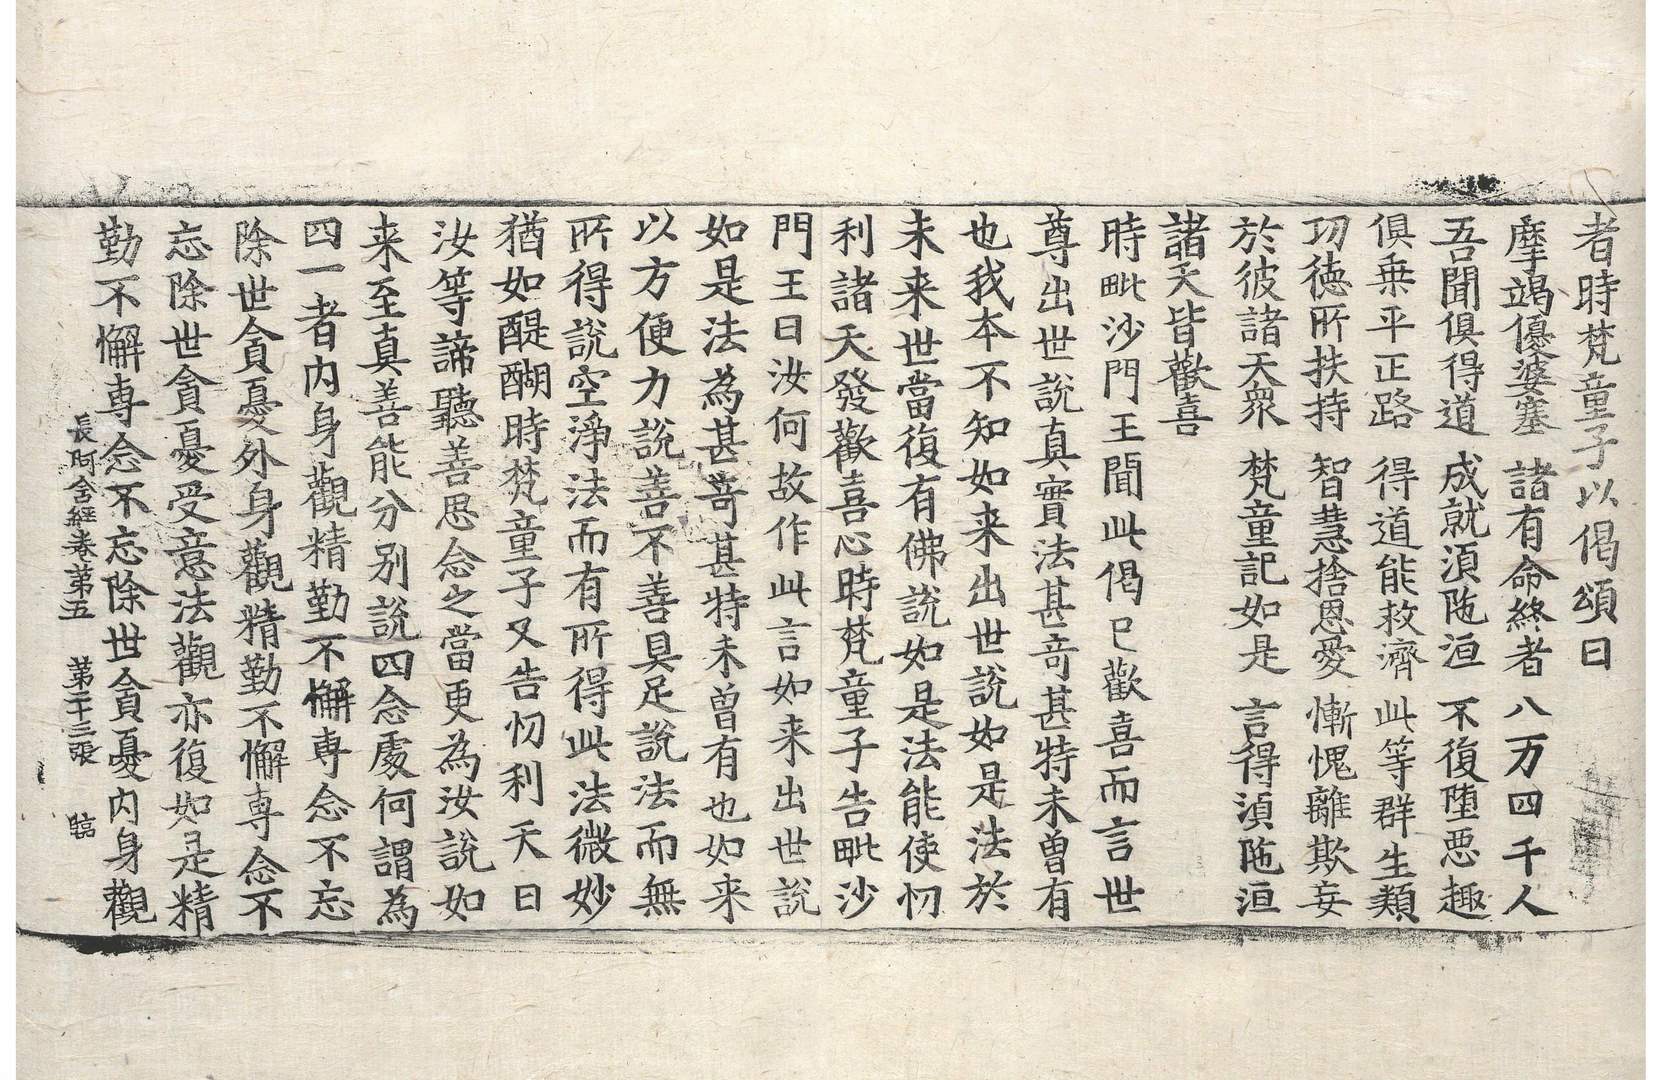 者時梵童子以偈頌曰
摩竭優婆塞 諸有命終者 八万四千人
吾聞俱得道 成就湏陁洹 不復墮悪趣
俱乗平正路 得道能救濟 此等群生類
功徳所扶持 智慧捨恩愛 慚愧離欺妄
於彼諸天衆 梵童記如是 言得湏陁洹
諸天皆歡喜
時毗沙門王聞此偈已歡喜而言世
尊出世說真實法甚竒甚特未曾有
也我本不知如来出世說如是法於
未来世當復有佛說如是法能使忉
利諸天發歡喜心時梵童子告毗沙
門王曰汝何故作此言如来出世說
如是法為甚竒甚特未曾有也如来
以方便力說善不善具足說法而無
所得說空淨法而有所得此法微妙
猶如醍醐時梵童子又告忉利天曰
汝等諦聽善思念之當更為汝說如
来至真善能分別說四念處何謂為
四一者内身觀精勤不懈専念不忘
除世貪憂外身觀精勤不懈専念不
忘除世貪憂受意法觀亦復如是精
勤不懈専念不忘除世貪憂内身觀
長阿含經卷第五 第二十三張 臨